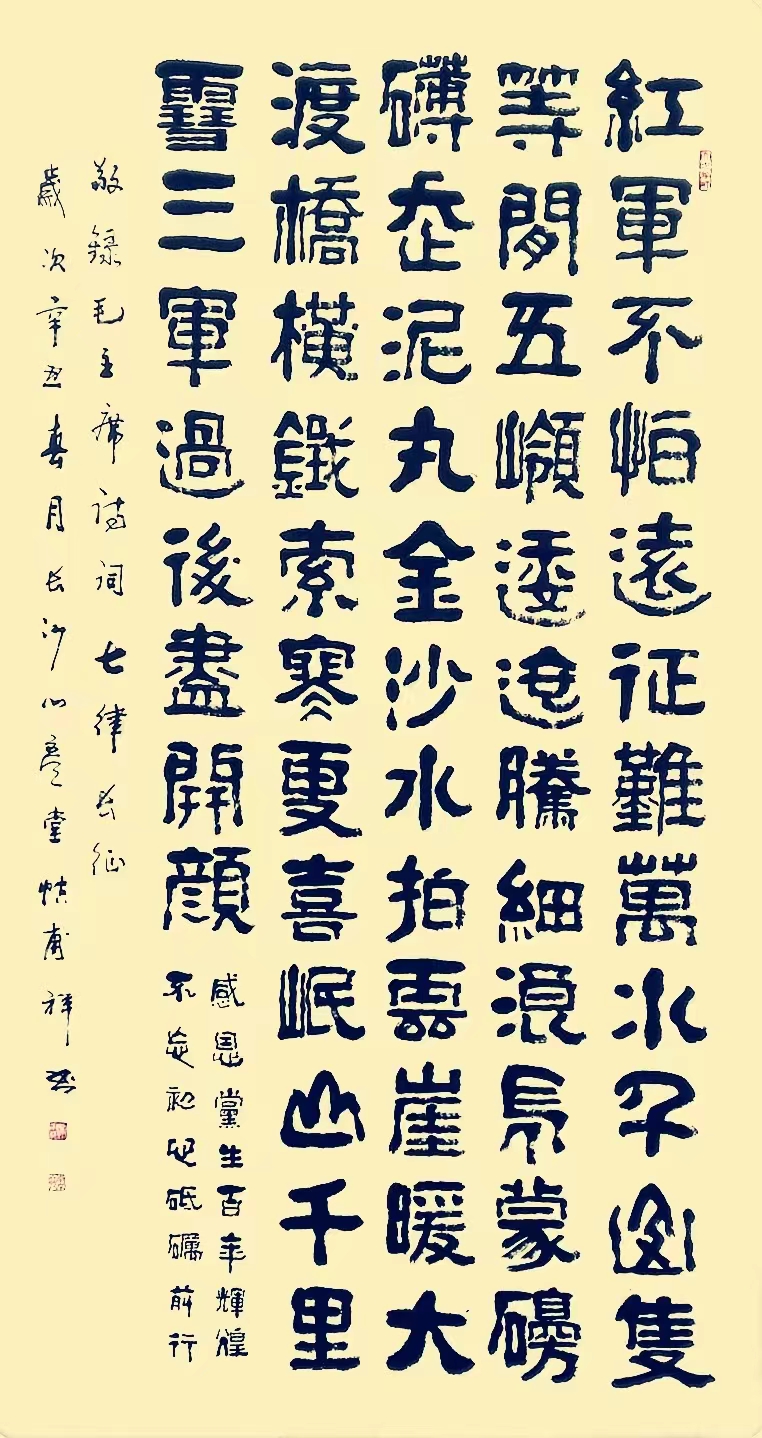 紅軍不怕遠征難萬水千山隻
等閒五嶺逶迤騰細浪烏蒙磅
礴走泥丸金沙水拍雲崖暖大
渡橋橫鐵索寒更喜岷山千里
雪三軍過後盡開顏
感恩黨生百年輝煌
不忘初心砥礪前行
敬錄毛主席詩詞七律長征
歲次辛丑春月長沙心堂甫祥書